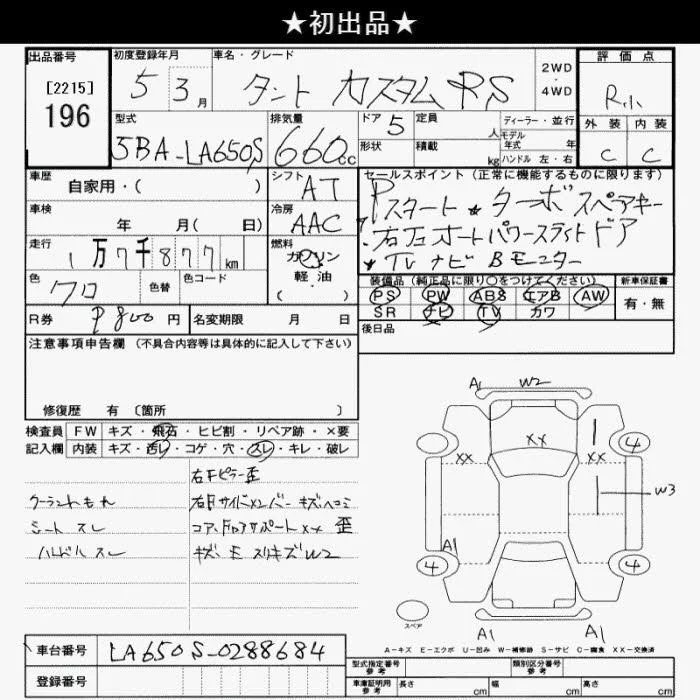 ★初出品★
出品番号 初度登録年月 車名・グレード 2WD・4WD 評価点
[2215] 196 5 3月 タント カスタム RS R小
型式 排気量 ドア 定員 人 ディーラー・並行 外装 内装
5BA-LA650S 660cc 5 形状 積載 kg モデル年式 年 ハンドル 左・右 C C
車歴 自家用・( ) シフト AT セールスポイント(正常に機能するものに限ります)
車検 年 月( 日) 冷房 AAC Pスタート ★ ターボ スペアキー
走行 1万7千877km 燃料 ガソリン 軽・油 ( ) 右左オートパワースライドドア
色 クロ 色替 色コード ★ TV ナビ Bモニター
装備品(純正品に限り○をつけてください) 新車保証書
PS PW ABS エアB AW 有・無
SR ナビ TV カワ
R券 8800円 名変期限 月 日 後日品
注意事項申告欄(不具合内容等は具体的に記入して下さい)
修復歴 有〔箇所 〕
検査員 FW キズ・飛石・ヒビ割・リペア跡・×要
記入欄 内装 キズ・汚レ・コゲ・穴・スレ・キレ・破レ
右Fピラー歪
クーラントもれ 右Fサイドメンバー キズヘコミ
シート スレ コア、ドコアサポート×× 歪
ハンドル スレ キズ、E スリキズ W2
A1 W2
××
4 4
×× ××
W3
A1
4 4
スペア
A1 A1
A-キズ E-エクボ U-凹み W-補修跡 S-サビ C-腐食 XX-交換済
車台番号 LA650S-0288684 型式指定番号 参考 類別区分番号 参考
登録番号 車庫証明用 参考 長さ cm 幅 cm 高さ cm